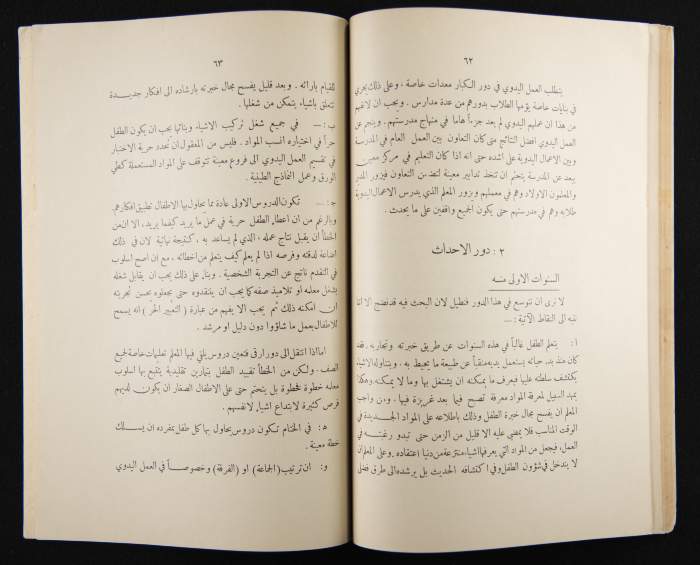 ٦٢
يتطلب العمل اليدوي في دور الكبار معدات خاصة ، وعلى ذلك يجري
في بنايات خاصة يؤمها الطلاب بدورهم من عدة مدارس . ويجب ان لا نفهم
من هذا ان عملهم اليدوي لم يعد جزءاً هاماً في منهاج مدرستهم . وينجم عن
العمل اليدوي افضل النتائج متى كان التعاون بين العمل العام في المدرسة
وبين الاعمال اليدوية على اشده حتى انه اذا كان التعليم في مركز معين
بعد عن المدرسة يتحتم ان تتخذ تدابير معينة لتضمن التعاون فيزور المدير
والمعلمون الاولاد وهم في معملهم ويزور المعلم الذي يدرس الاعمال اليدوية
طلابه وهم في مدرستهم حتى يكون الجميع واقفين على ما يحدث .
٢ : دور الاحداث
السنوات الاولى منه
لا نرى ان نتوسع في هذا الدور فنطيل لان البحث فيه قد نضج الا اننا
ننبه الى النقاط الآتية : —
أ : يتعلم الطفل غالباً في هذه السنوات عن طريق خبرته وتجاربه . فقد
كان منذ بدء حياته يستعمل يديه منقباً عن طبيعة ما يحيط به . وبتناوله الاشياء
يكتشف سلطته عليها فيعرف ما يمكنه ان يشتغل بها وما لا يمكنه . وهكذا
يمهد السبيل لمعرفة المواد معرفة تصبح فيما بعد غريزة فيها . ومن واجب
المعلم ان يفسح مجال خبرة الطفل وذلك باطلاعه على المواد الجديدة في
الوقت المناسب فلا يمضي عليه الا قليل من الزمن حتى تبدو رغبته في
العمل ، فيجعل من المواد التي يعرفها اشياء منتزعة من دنيا اعتقاده . وعلى المعلم ان
لا يتدخل في شؤون الطفل وفي اكتشافه الحديث بل يرشده الى طرق فضلى
٦٣
للقيام بارائه . وبعد قليل يفسح مجال خبرته بارشاده الى افكار جديدة
تتعلق باشياء يتمكن من شغلها .
ب : — في جميع شغل تركيب الاشياء وبنائها يجب ان يكون الطفل
حراً في اختياره انسب المواد . فليس من المعقول ان تحدد حرية الاختيار
في تقسيم العمل اليدوي الى فروع معينة تتوقف على المواد المستعملة كطي
الورق وعمل النماذج الطينية .
ج : — تكون الدروس الاولى عادة مما يحاول بها الاطفال تطبيق افكارهم
وبالرغم من ان اعطاء الطفل حرية في عمل ما يريد كيفما يريد ، الا ان من
الخطأ ان يقبل نتاج عمله ، الذي لم يساعد به ، كنتيجة نهائية لان في ذلك
اضاعة لدقته وفرصه اذا لم يعلم كيف يتعلم من اخطائه ، مع ان اصح اسلوب
في التقدم ناتج عن التجربة الشخصية . وبناء على ذلك يجب ان يقابل شغله
بشغل معلمه او تلاميذ صفه كما يجب ان ينتقدوه حتى يجعلوه يحسن تجربته
ان امكنه ذلك ثم يجب الا يفهم من عبارة ( التعبير الحر ) انه يسمح
للاطفال بعمل ما شاؤوا دون دليل او مرشد .
اما اذا انتقل الى دور ارقى فتعين دروس يلقي فيها المعلم تعليمات خاصة لجميع
الصف . ولكن من الخطأ تقييد الطفل بتمارين تقليدية يتبع بها اسلوب
معلمه خطوة فخطوة بل يتحتم حتى على الاطفال الصغار ان يكون لديهم
فرص كثيرة لابتداع اشياء لانفسهم .
ه : في الختام تكون دروس يحاول بها كل طفل بمفرده ان يسلك
خطة معينة .
و : ان ترتيب ( الجماعة ) او ( الفرقة ) وخصوصاً في العمل اليدوي